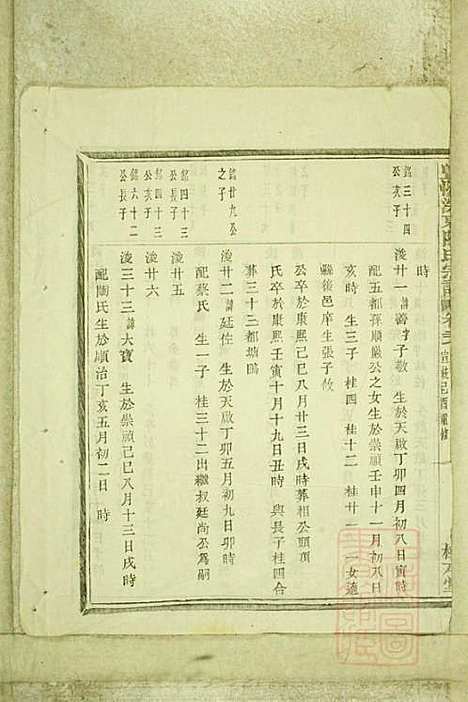 時
銘三十四公亥子
淩廿一 諱 子敬 生於天啟丁卯四月初八日寅時
配五都孫順嚴公之女生於崇禎壬申十一月初八日
亥時 生三子 桂四 桂十二 桂廿一 一女適
縣後邑庠生張子攸
公卒於康熙己巳八月廿三日戌時葬相公頭頂
氏卒於康熙壬寅十月十九日丑時 與長子桂四合
葬三十三都塘塢
銘廿九公之子
淩廿二 諱廷佐 生於天啟丁卯五月初九日卯時
配蔡氏 生一子 桂三十二出繼叔廷尚公為嗣
銘四十三公長子
淩廿五
銘四十三公亥子
淩廿六
銘六十二公長子
淩三十三 諱大寶 生於崇禎己巳八月十三日戌時
配陶氏生於順治丁亥五月初二日 時